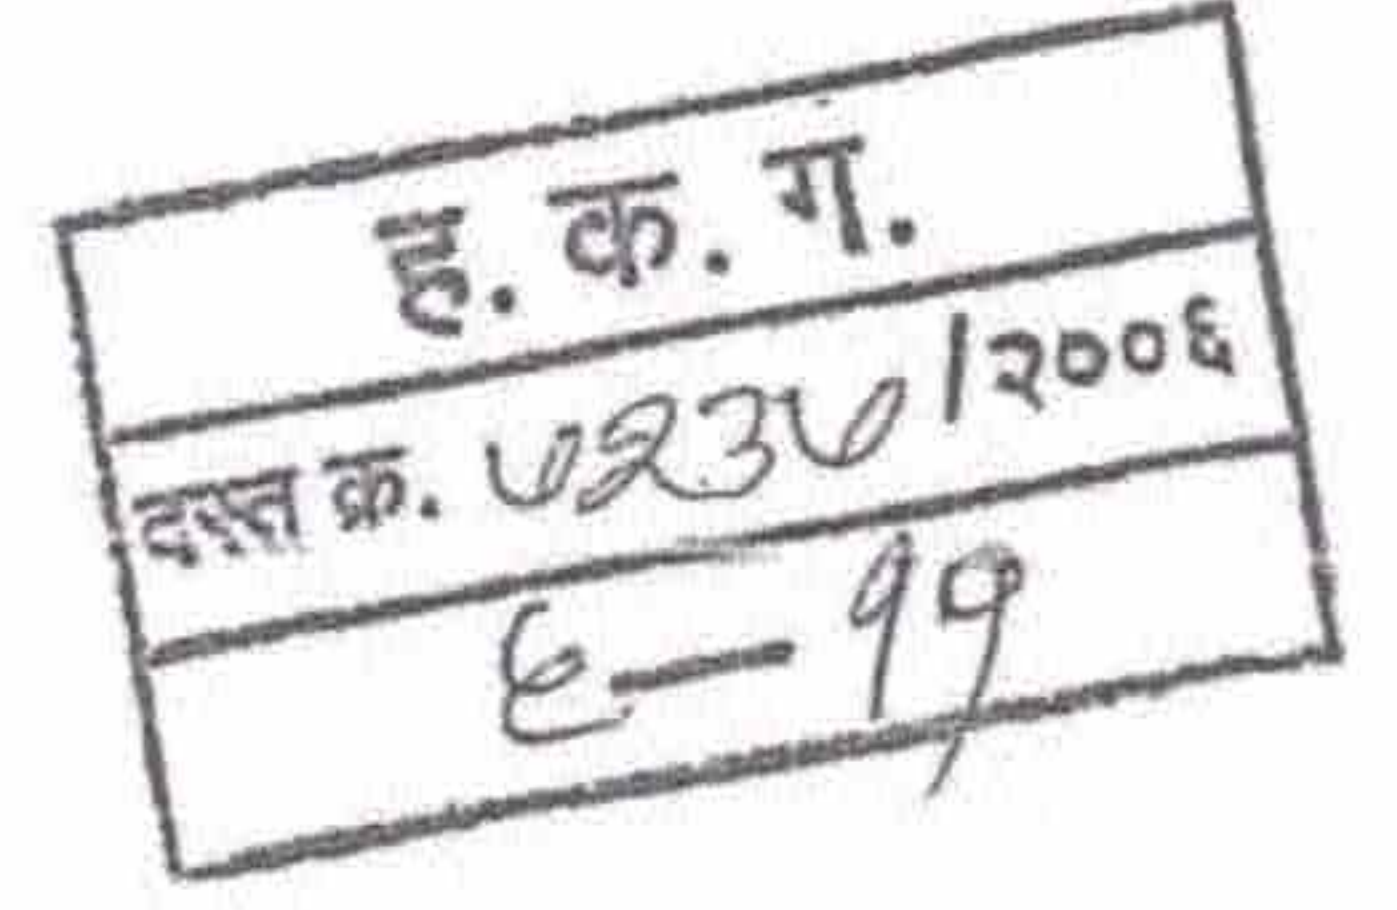 ह. क. ग.
दस्त क्र. ७२३७/२००६
६-११